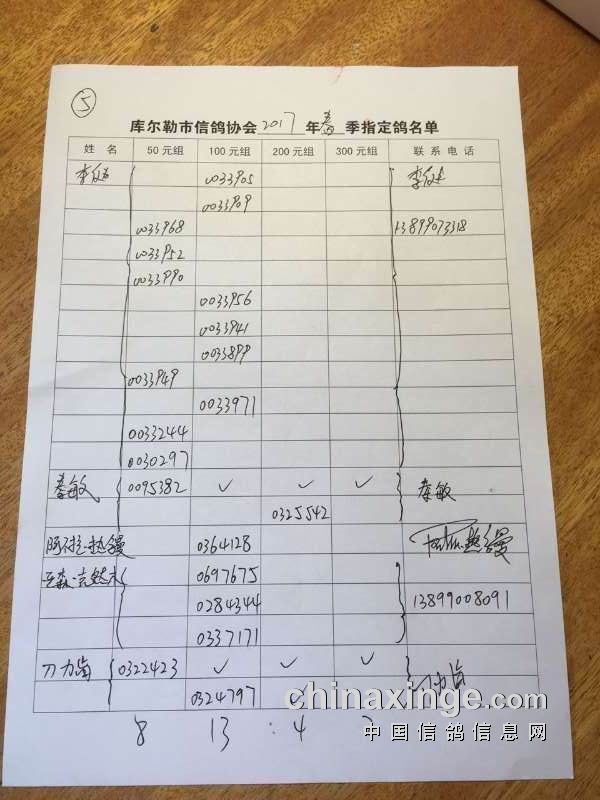 5
库尔勒市信鸽协会2017年春季指定鸽名单
姓 名 50元组 100元组 200元组 300元组 联系电话
0033905
0033909
0033968 13899073318
0033952
0033990
0033956
0033941
0033899
0033949
0033971
0033244
0030297
秦敏 0095382 ✓ ✓ ✓ 秦敏
0325542
0364128
0697675
0284344 13899008091
0337171
刀力岗 0322423 ✓ ✓ ✓ 刀力岗
0324797
8 13 : 4
chinaxinge.com
中国信鸽信息网